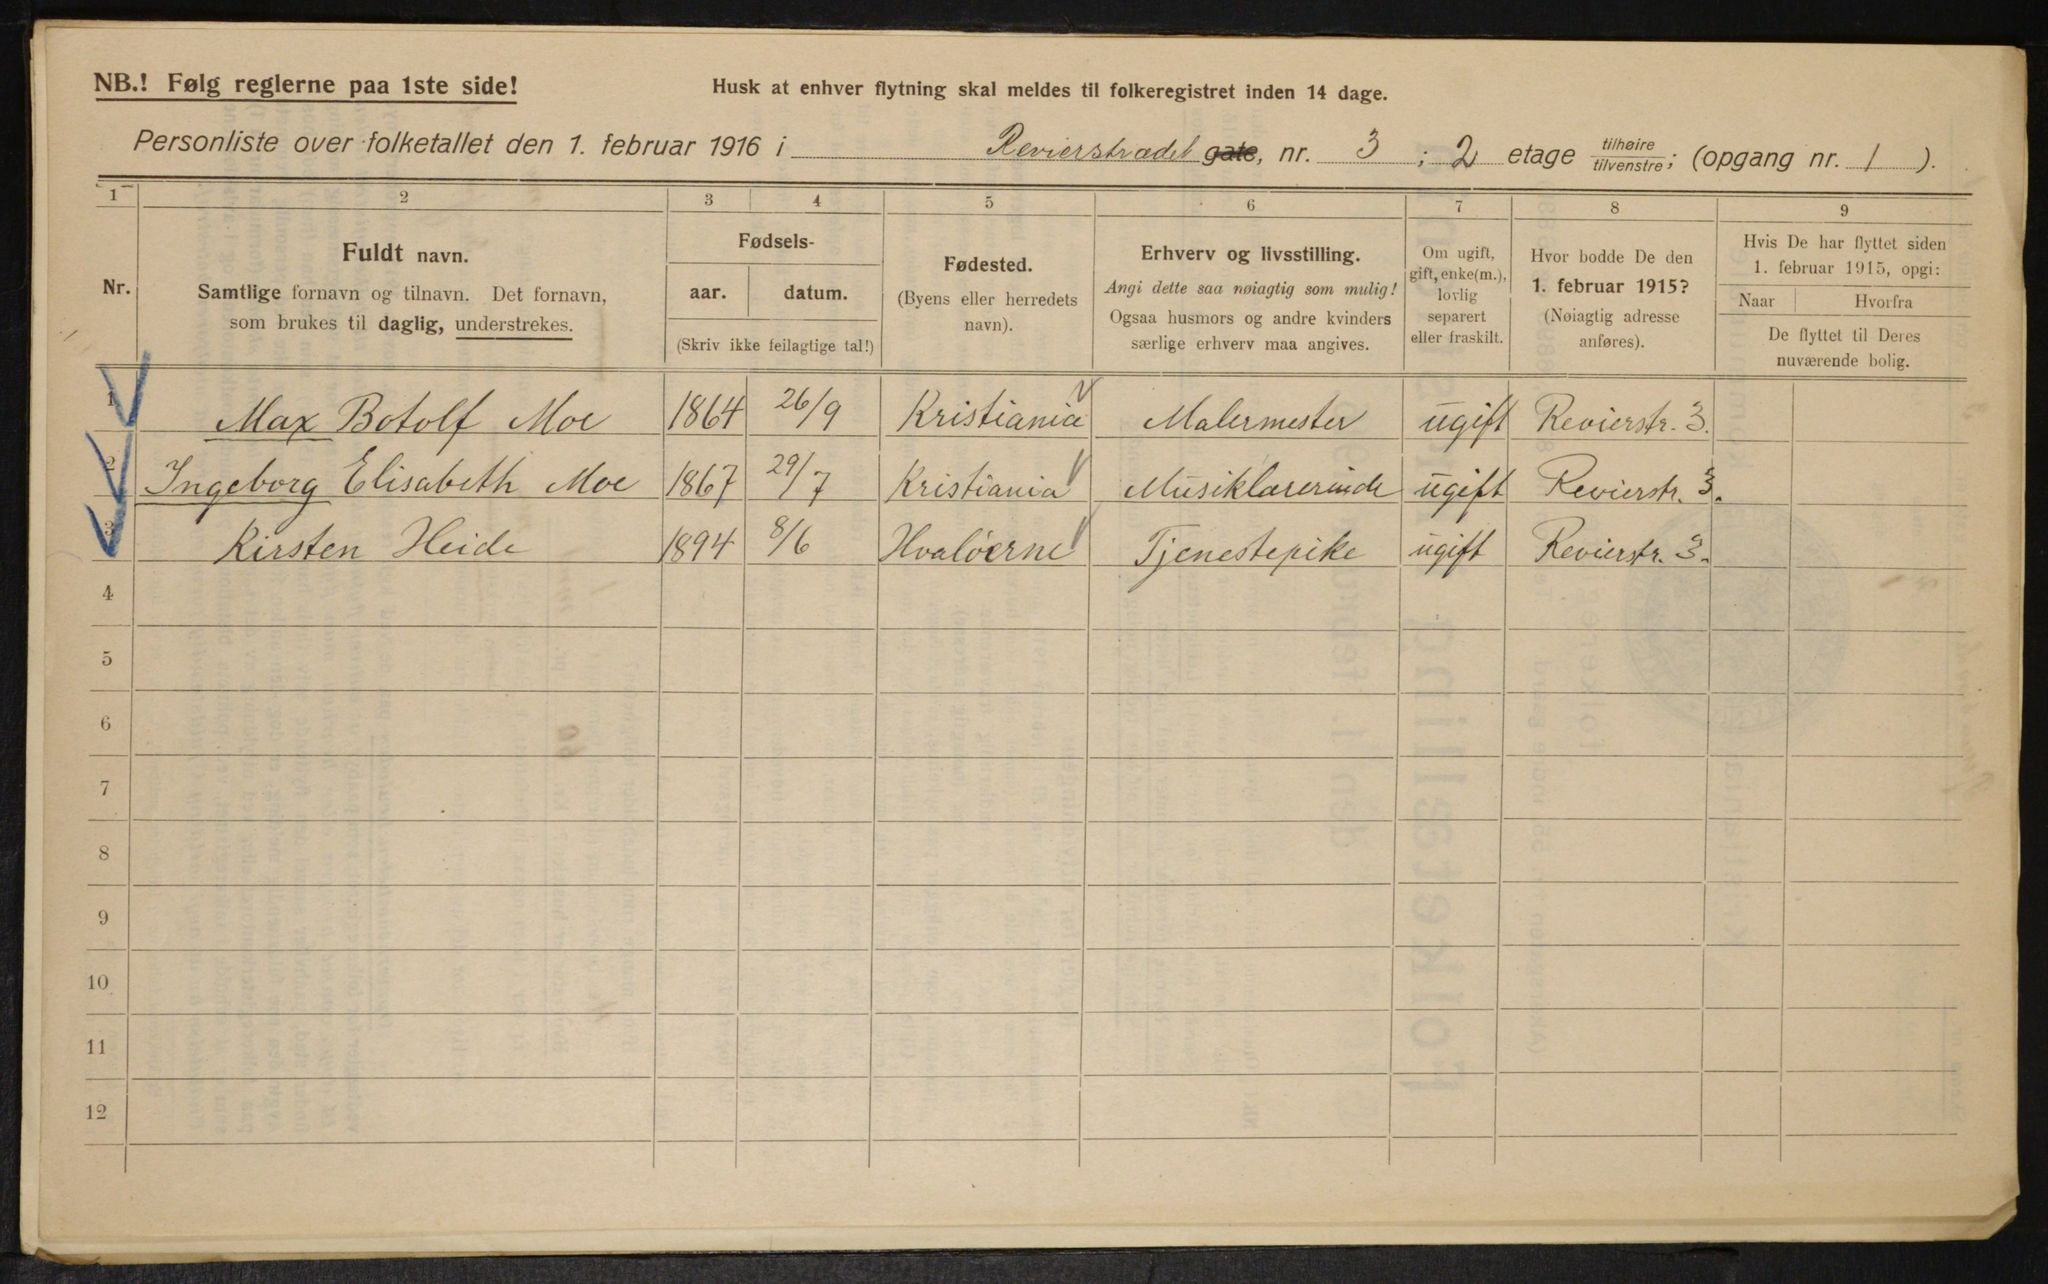 NB.! Følg reglerne paa 1ste side!
Husk at enhver flytning skal meldes til folkeregistret inden 14 dage.
Personliste over folketallet den 1. februar 1916 i Revierstrædet gate, nr. 3 ; 2 etage tilhøire/tilvenstre; (opgang nr. 1 ).
1 2 3 4 5 6 7 8 9
Nr.
Fuldt navn.
Samtlige fornavn og tilnavn. Det fornavn,
som brukes til daglig, understrekes.
Fødsels-
aar. datum.
(Skriv ikke feilagtige tal!)
Fødested.
(Byens eller herredets
navn).
Erhverv og livsstilling.
Angi dette saa nøiagtig som mulig!
Ogsaa husmors og andre kvinders
særlige erhverv maa angives.
Om ugift,
gift, enke(m.),
lovlig
separert
eller fraskilt.
Hvor bodde De den
1. februar 1915?
(Nøiagtig adresse
anføres).
Hvis De har flyttet siden
1. februar 1915, opgi:
Naar Hvorfra
De flyttet til Deres
nuværende bolig.
1 Max Botolf Moe 1864 26/9 Kristiania Malermester ugift Revierstr. 3.
2 Ingeborg Elisabeth Moe 1867 29/7 Kristiania Musiklærerinde ugift Revierstr. 3.
3 Kirsten Heide 1894 8/6 Hvaløerne Tjenestepike ugift Revierstr. 3.
4
5
6
7
8
9
10
11
12